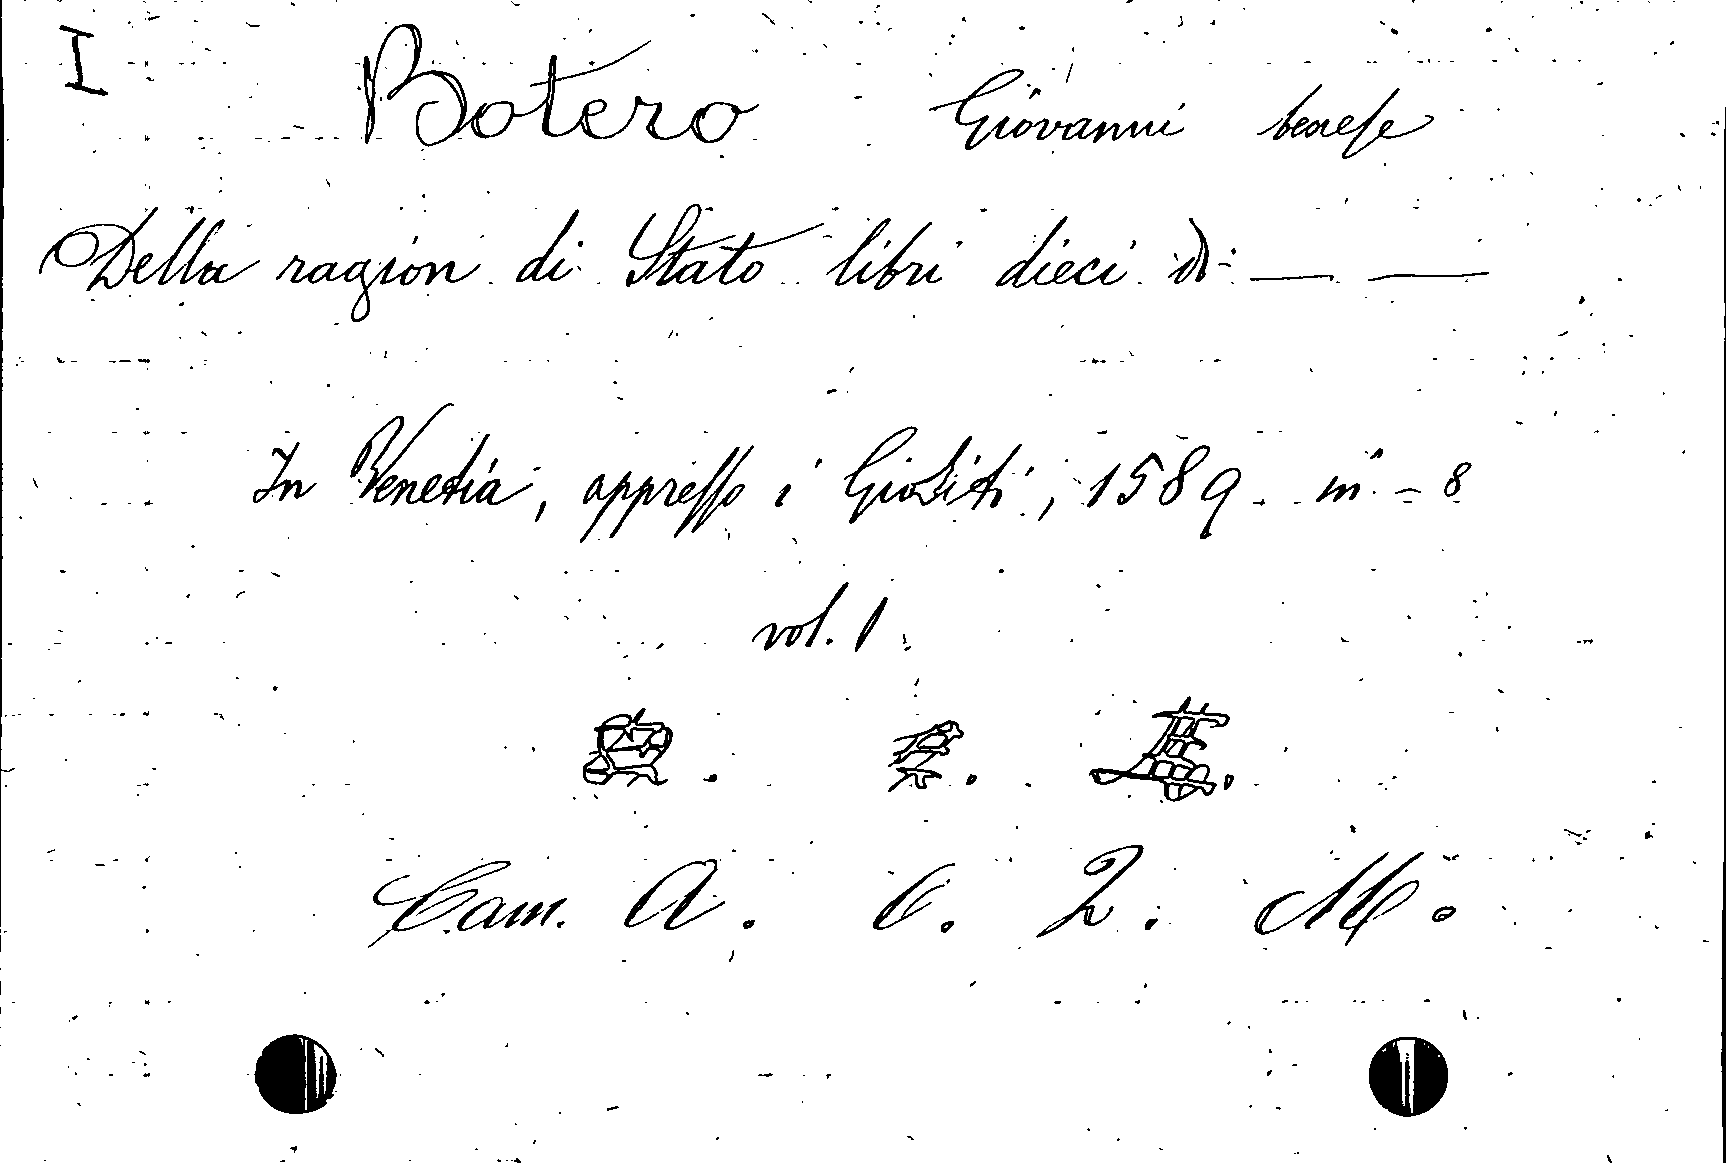 I Botero Giovanni benese
Della ragion di Stato libri dieci di — —
In Venetia, appresso i Gioliti, 1589. in - 8
vol. 1.
Cam. A. C. 2. M.